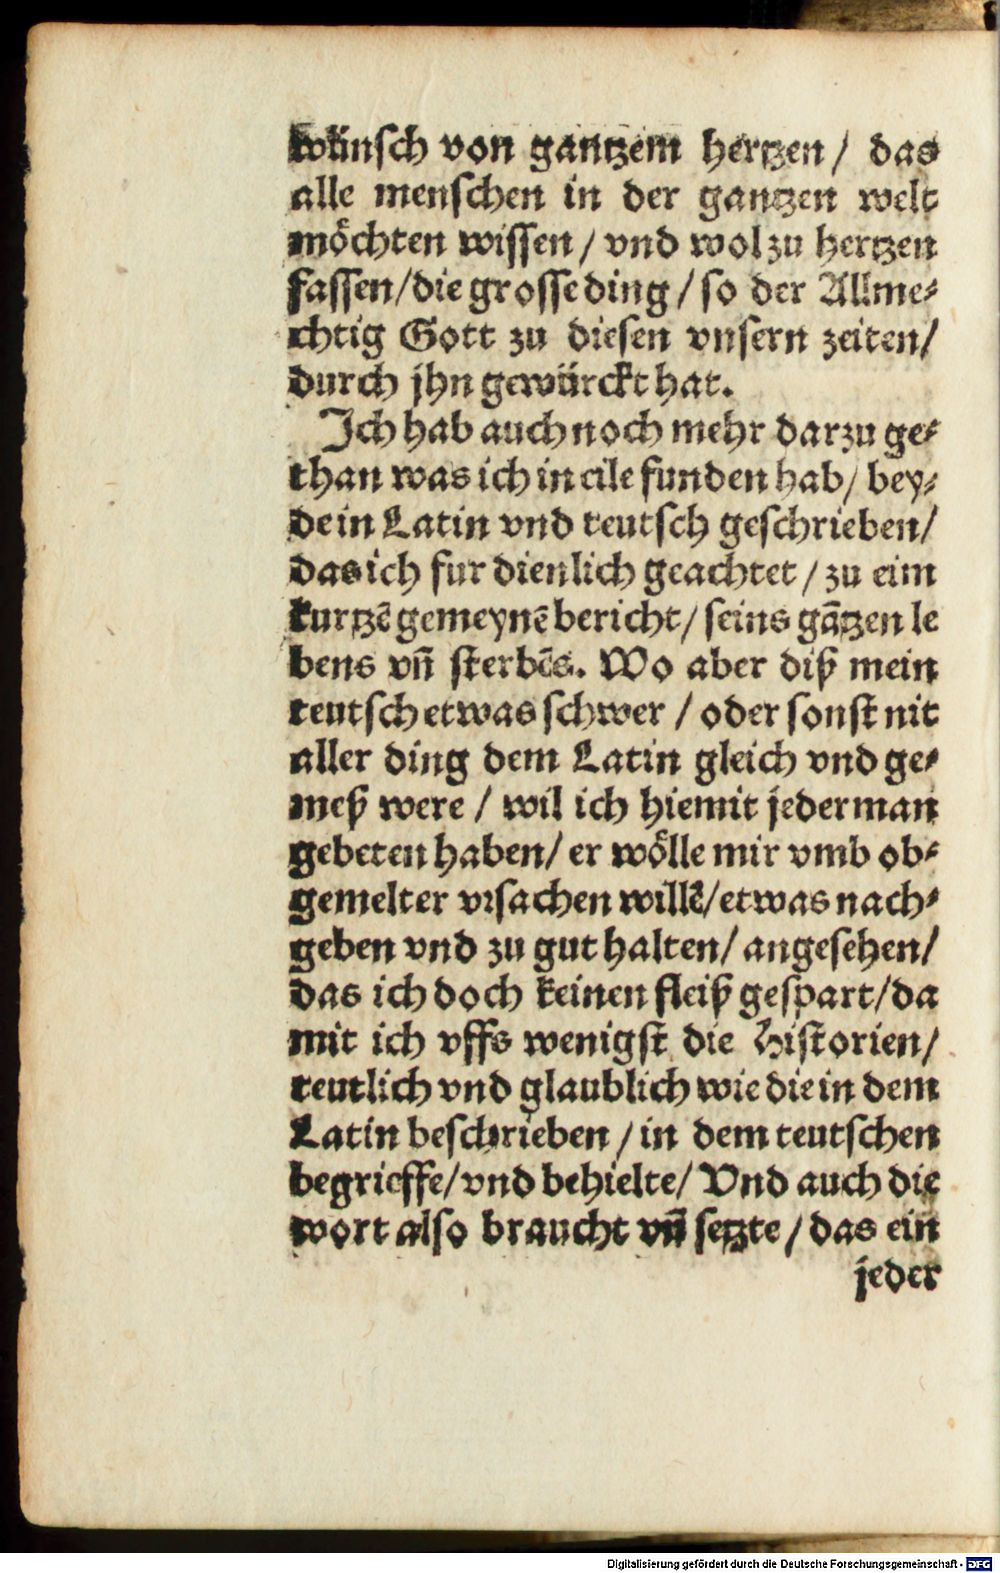 wünsch von gantzem hertzen / das
alle menschen in der gantzen welt
möchten wissen / vnd wol zu hertzen
fassen / die grosse ding / so der Allme⸗
chtig Gott zu diesen vnsern zeiten /
durch jhn gewürckt hat.
Ich hab auch noch mehr darzu ge⸗
than was ich in eile funden hab / bey⸗
de in Latin vnd teutsch geschrieben /
das ich fur dienlich geachtet / zu eim
kurtzē gemeynē bericht / seins gātzen le
bens vn̄ sterbēs. Wo aber diß mein
teutsch etwas schwer / oder sonst nit
aller ding dem Latin gleich vnd ge⸗
meß were / wil ich hiemit jederman
gebeten haben / er wölle mir vmb ob⸗
gemelter vrsachen willē / etwas nach⸗
geben vnd zu gut halten / angesehen /
das ich doch keinen fleiß gespart / da
mit ich vffs wenigst die Historien /
teutlich vnd glaublich wie die in dem
Latin beschrieben / in dem teutschen
begrieffe / vnd behielte / Vnd auch die
wort also braucht vn̄ setzte / das ein
jeder
Digitalisierung gefördert durch die Deutsche Forschungsgemeinschaft - DFG